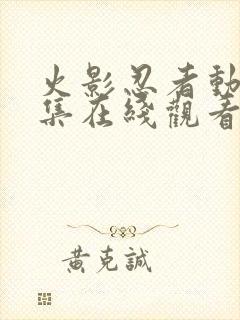 火影忍者動
集在綫觀看
黄克誠